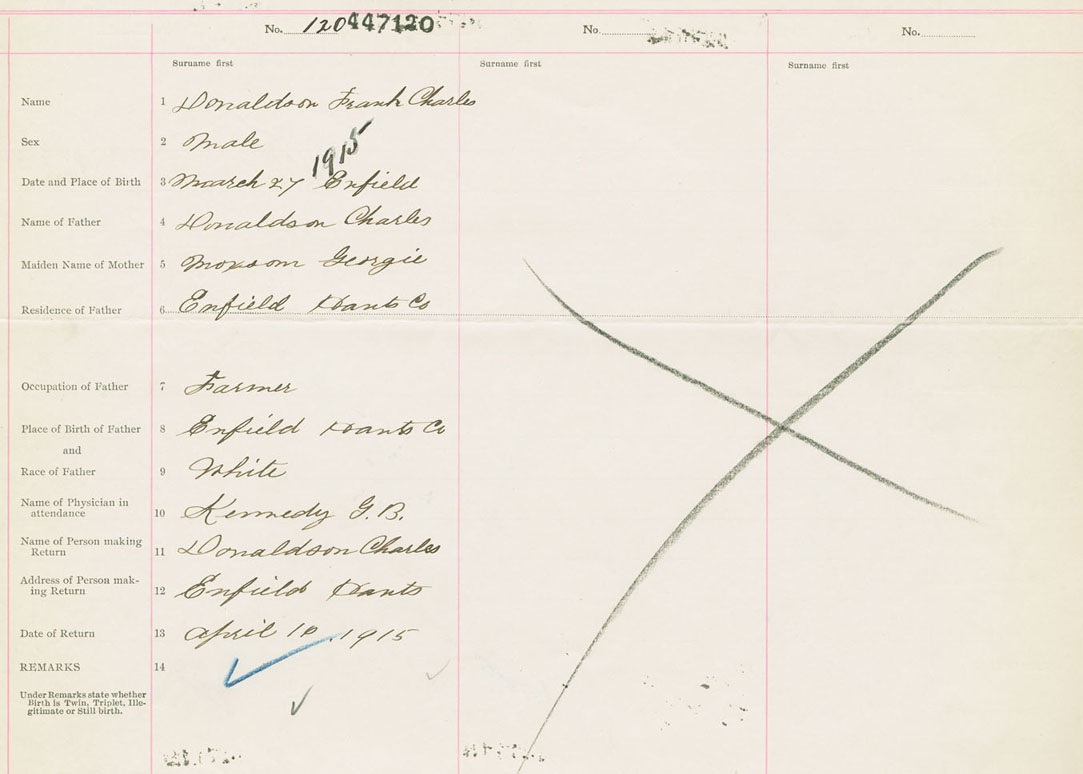 No. 120 447120 No. No.
Surname first Surname first Surname first
Name 1 Donaldson Frank Charles
Sex 2 Male
1915
Date and Place of Birth 3 March 27 Enfield
Name of Father 4 Donaldson Charles
Maiden Name of Mother 5 Moxsom Georgie
Residence of Father 6 Enfield Hants Co
Occupation of Father 7 Farmer
Place of Birth of Father 8 Enfield Hants Co
and
Race of Father 9 White
Name of Physician in
attendance 10 Kennedy G.B.
Name of Person making
Return 11 Donaldson Charles
Address of Person mak-
ing Return 12 Enfield Hants
Date of Return 13 April 1915
REMARKS 14
Under Remarks state whether
Birth is Twin, Triplet, Ille-
gitimate or Still birth.